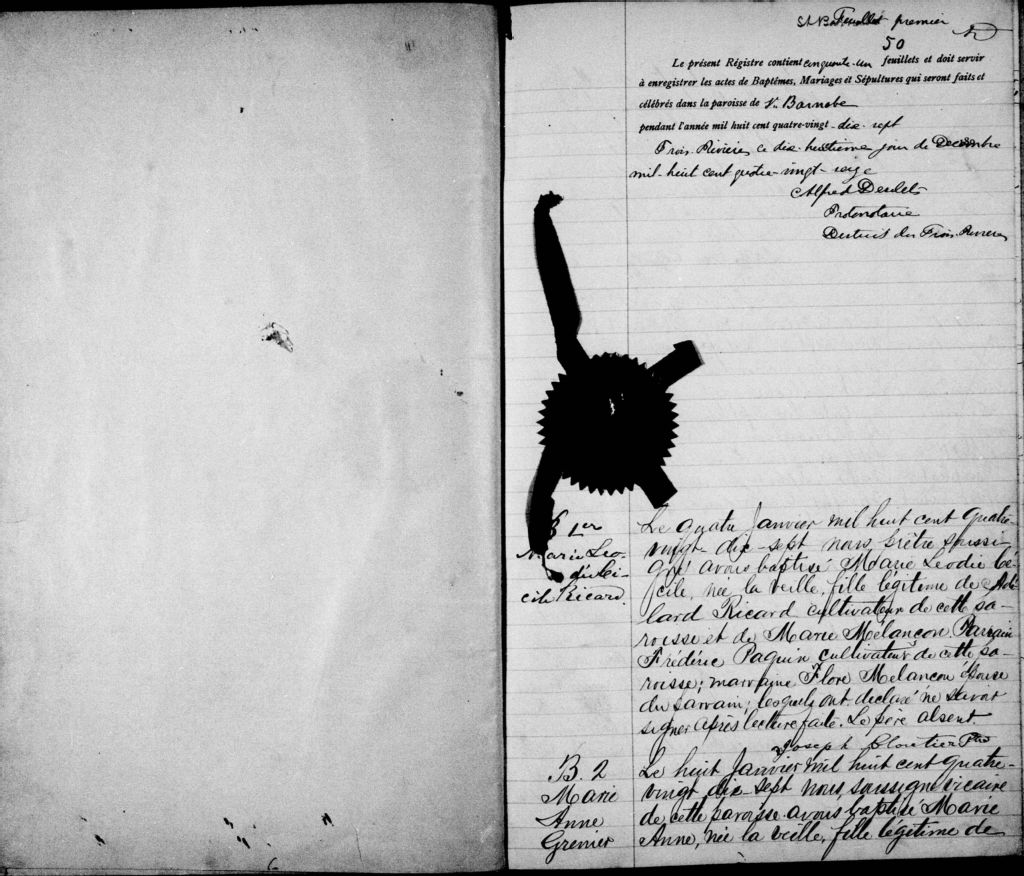 St Bar Feuillet premier
50
Le présent Régistre contient cinquante-un feuillets et doit servir
à enregistrer les actes de Baptêmes, Mariages et Sépultures qui seront faits et
célébrés dans la paroisse de St. Barnabe
pendant l'année mil huit cent quatre-vingt-dix-sept
Trois-Rivières, ce dix-huitième jour de Decembre
mil-huit cent quatre-vingt-seize
Alfred Desilets
Protonotaire
District des Trois-Rivières
B 1er
Marie Léo-
die Cé-
cile Ricard.
Le quatre Janvier mil huit cent quatre-
vingt-dix-sept nous prêtre soussi-
gné avons baptisé Marie Léodie Cé-
cile, née la veille, fille légitime de Abé-
lard Ricard cultivateur de cette pa-
roisse et de Marie Mélançon. Parrain
Frédéric Paquin cultivateur de cette pa-
roisse; marraine Flore Mélancon épouse
du parrain; lesquels ont déclaré ne savoir
signer après lecture faite. Le père absent.
Joseph Cloutier Ptre
B. 2
Marie
Anne
Grenier
Le huit Janvier mil huit cent quatre-
vingt-dix-sept nous soussigné vicaire
de cette paroisse avons baptisé Marie
Anne, née la veille, fille légitime de